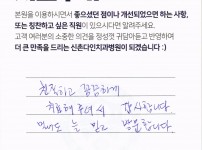 본원을 이용하시면서 좋으셨던 점이나 개선되었으면 하는 사항,
또는 칭찬하고 싶은 직원이 있으시다면 알려주세요.
고객 여러분의 소중한 의견을 정성껏 귀담아듣고 반영하며
더 큰 만족을 드리는 신촌다인치과병원이 되겠습니다 :)
친절하고 꼼꼼하게
치료해 주셔서 감사합니다
믿고 방문합니다.